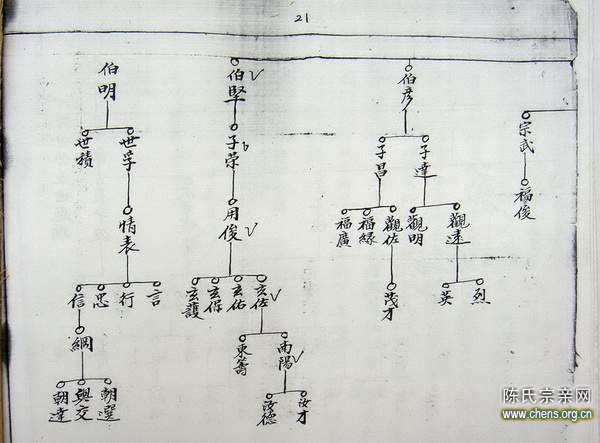 21
宗武
福俊
伯彥
子達
子昌
觀遠
觀明
觀佐
福緑
福廣
烈
英
茂才
伯堅
子荣
用俊
玄佐
玄佑
玄保
玄護
南陽
東籌
汝才
汝德
伯明
世孚
世積
情表
言
行
忠
信
綱
朝選
興交
朝達
陈氏宗亲网
www.chens.org.cn